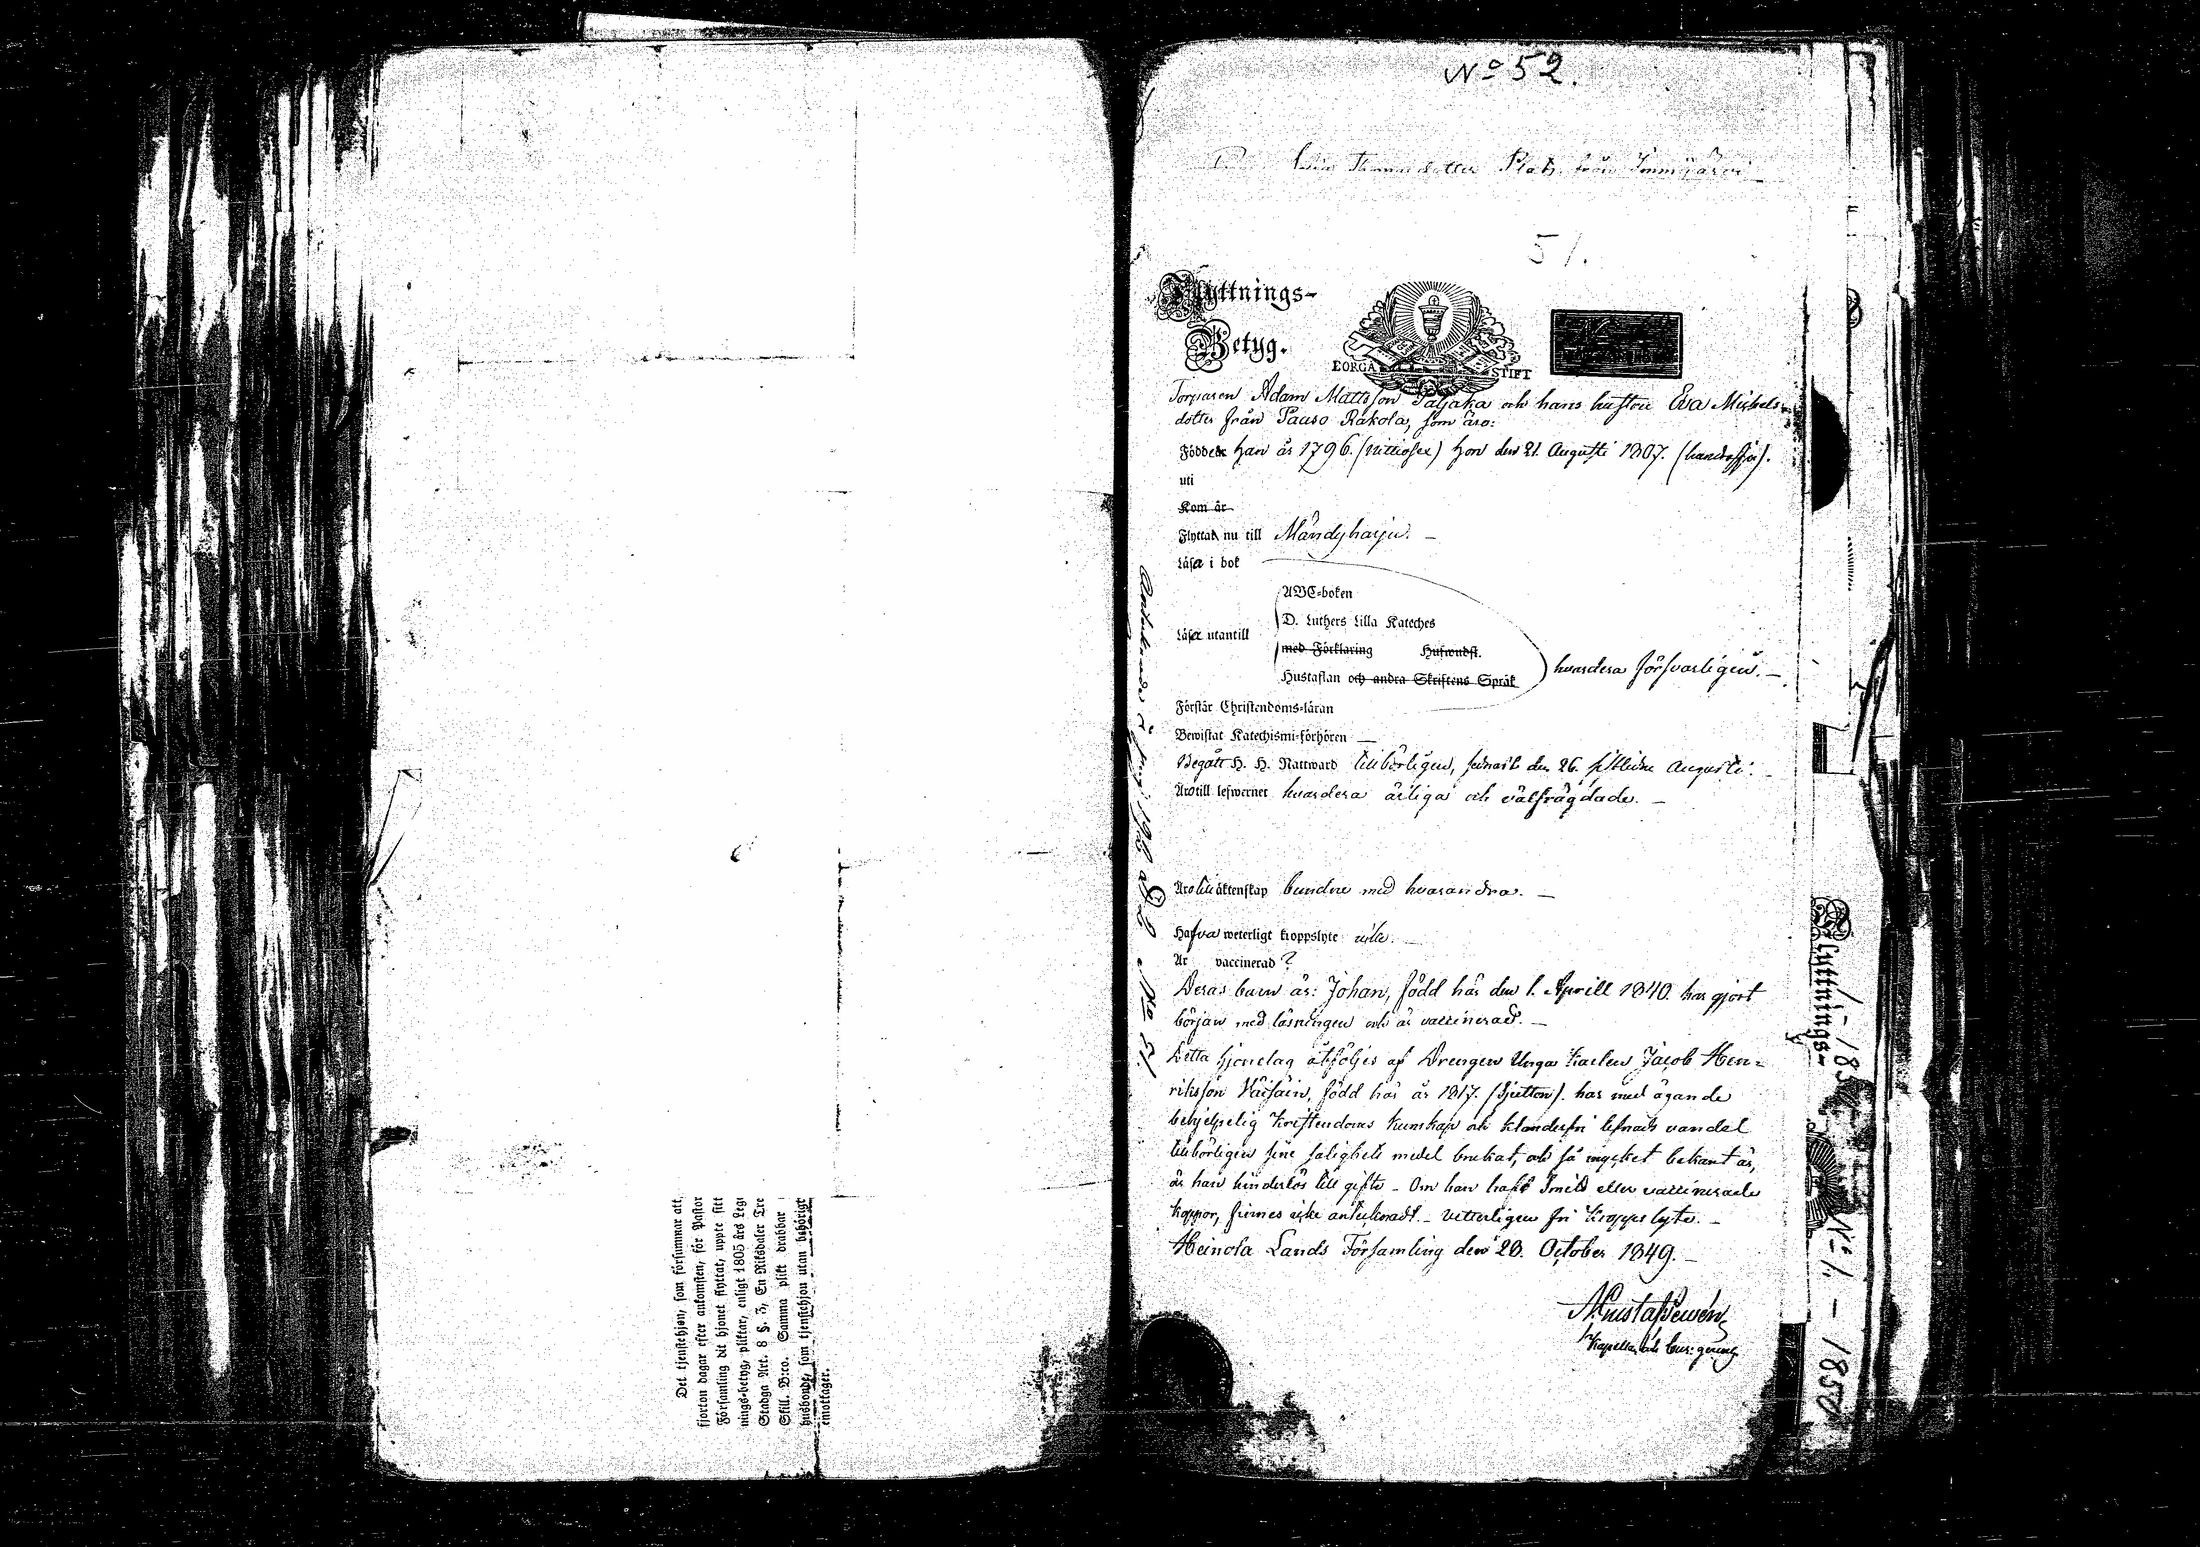 No 52.
Thomasdotter Plats från
51.
Flyttnings-
Betyg.
BORGÅ STIFT
Torparen Adam Mattsson Paljaka och hans hustru Eva Michels-
dotter från Pauso Rakola, som äro:
Födde han år 1796. (nittiosex) hon den 21. Augusti 1807. (hundrasju).
uti
Kom år
Flyttat nu till Mändyharju. —
Läsa i bok
ABC-boken
D. Luthers Lilla Kateches
Läsa utantill
med Förklaring Hufwudst.
Hustaflan och andra Skriftens Språk
hvardera försvarligen. —
Förstår Christendoms-läran
Bewistat Katechismi-förhören —
Begått H. H. Nattward tillbörligen, senast den 26. sistlidne Augusti. —
Äro till lefwernet hvardera ärliga och välfrägdade. —
Äro till äktenskap bundne med hvarandra. —
Hafva weterligt kroppslyte icke. —
Är vaccinerad ?
Deras barn är: Johan, född här den 1. Aprill 1840. har gjort
början med läsningen och är vaccinerad. —
Detta hjonelag åtföljes af Drengen Unga Karlen Jacob Hen-
riksson Väisäin, född här år 1817. (Sjutton). har med ägande
behjelpelig Kristendoms kunskap och klanderfri lefnads vandel
tillbörligen sine salighets medel brukat, och så mycket bekant är,
är han hinderlös till gifte — Om han haft Smitt eller vaccinerade
koppor, finnes icke antecknadt. — Vetterligen fri kroppslyte. —
Heinola Lands Församling den 20. October 1849. —
Kapellan och
No 51.
Det tjenstehjon, som försummar att,
fjorton dagar efter ankomsten, för Pastor
i Församling dit hjonet flyttat, uppte sitt
nings-betyg, pliktar, enligt 1805 års Leg:
Stadga Art. 8 §. 3, En Riksdaler Tre
Skill. B:co. Samma plikt drabbar
husbonde, som tjenstehjon utan behörigt
emottager.
Flyttnings-
No 1. — 1850